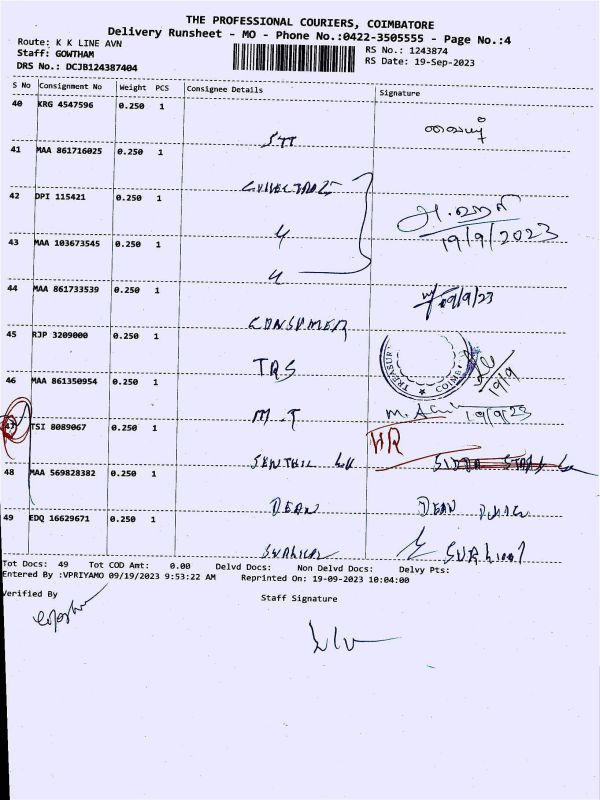 THE PROFESSIONAL COURIERS, COIMBATORE
Delivery Runsheet - MO - Phone No.:0422-3505555 - Page No.:4
Route: K K LINE AVN
Staff: GOWTHAM
DRS No.: DCJB124387404
RS No.: 1243874
RS Date: 19-Sep-2023
S No Consignment No Weight PCS Consignee Details Signature
40 KRG 4547596 0.250 1
41 MAA 861716025 0.250 1
42 DPI 115421 0.250 1
19/9/2023
43 MAA 103673545 0.250 1
44 MAA 861733539 0.250 1
CONSUMER
45 RJP 3209000 0.250 1
TREASURY
19/9
46 MAA 861350954 0.250 1
M.T 19/9/23
47 TSI 8089067 0.250 1
SENTHIL
48 MAA 569828382 0.250 1
DEAN DEAN
49 EDQ 16629671 0.250 1
Tot Docs: 49 Tot COD Amt: 0.00 Delvd Docs: Non Delvd Docs: Delvy Pts:
Entered By :VPRIYAMO 09/19/2023 9:53:22 AM Reprinted On: 19-09-2023 10:04:00
Verified By Staff Signature